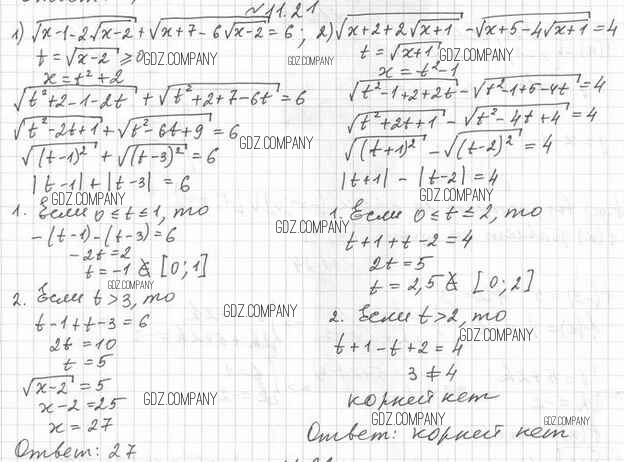 №11.21
1) √(x-1-2√(x-2)) + √(x+7-6√(x-2)) = 6;
t = √(x-2) ≥ 0
x = t²+2
√(t²+2-1-2t) + √(t²+2+7-6t) = 6
√(t²-2t+1) + √(t²-6t+9) = 6
√((t-1)²) + √((t-3)²) = 6
|t-1|+|t-3| = 6
1. Если 0≤t≤1, то
-(t-1)-(t-3)=6
-2t=2
t=-1 ∉ [0;1]
2. Если t>3, то
t-1+t-3=6
2t=10
t=5
√(x-2) = 5
x-2=25
x=27
Ответ: 27
2) √(x+2+2√(x+1)) - √(x+5-4√(x+1)) = 4
t = √(x+1)
x = t²-1
√(t²-1+2+2t) - √(t²-1+5-4t) = 4
√(t²+2t+1) - √(t²-4t+4) = 4
√((t+1)²) - √((t-2)²) = 4
|t+1| - |t-2| = 4
1. Если 0≤t≤2, то
t+1+t-2=4
2t=5
t=2,5 ∉ [0;2]
2. Если t>2, то
t+1-t+2=4
3≠4
корней нет
Ответ: корней нет
GDZ.COMPANY
GDZ.COMPANY
GDZ.COMPANY
GDZ.COMPANY
GDZ.COMPANY
GDZ.COMPANY
GDZ.COMPANY
GDZ.COMPANY
GDZ.COMPANY
GDZ.COMPANY
GDZ.COMPANY
GDZ.COMPANY
GDZ.COMPANY